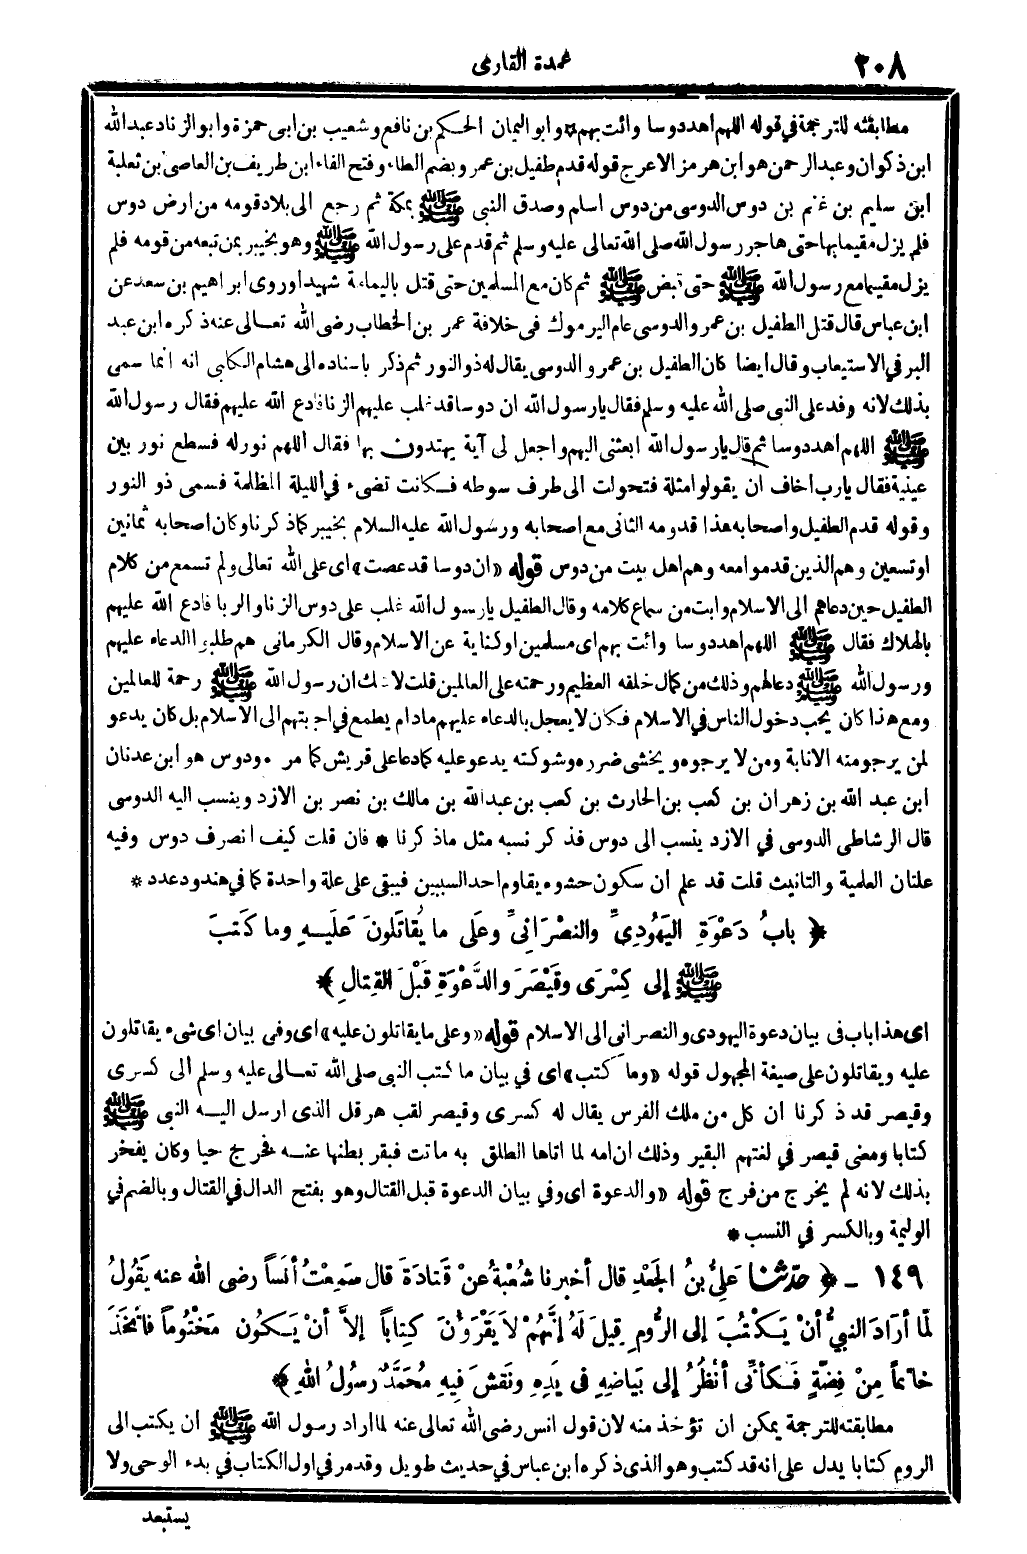 ٢٠٨ عمدة القارى
مطابقته للترجمة فى قوله اللهم اهد دوسا وائت بهم * وابو اليمان الحكم بن نافع وشعيب بن ابى حمزة وابو الزناد عبد الله
ابن ذكوان وعبد الرحمن هو ابن هرمز الاعرج قوله قدم طفيل بن عمرو بضم الطاء وفتح الفاء ابن طريف بن العاصى بن ثعلبة
ابن سليم بن غنم بن دوس الدوسى من دوس اسلم وصدق النبى ﷺ بمكة ثم رجع الى بلاد قومه من ارض دوس
فلم يزل مقيما بها حتى هاجر رسول الله صلى الله تعالى عليه وسلم ثم قدم على رسول الله ﷺ وهو بخيبر بمن تبعه من قومه فلم
يزل مقيما مع رسول الله ﷺ حتى قبض ﷺ ثم كان مع المسلمين حتى قتل باليمامة شهيدا وروى ابراهيم بن سعد عن
ابن عباس قال قتل الطفيل بن عمرو الدوسى عام اليرموك فى خلافة عمر بن الخطاب رضى الله تعالى عنه ذكره ابن عبد
البر فى الاستيعاب وقال ايضا كان الطفيل بن عمرو الدوسى يقال له ذو النور ثم ذكر باسناده الى هشام الكلبى انه انما سمى
بذلك لانه وفد على النبى صلى الله عليه وسلم فقال يارسول الله ان دوسا قد غلب عليهم الزنا فادع الله عليهم فقال رسول الله
ﷺ اللهم اهد دوسا ثم قال يارسول الله ابعثنى اليهم واجعل لى آية يهتدون بها فقال اللهم نور له فسطع نور بين
عينيه فقال يارب اخاف ان يقولوا مثلة فتحولت الى طرف سوطه فكانت تضىء فى الليلة المظلمة فسمى ذو النور
وقوله قدم الطفيل واصحابه هذا قدومه الثانى مع اصحابه ورسول الله عليه السلام بخيبر كما ذكرنا وكان اصحابه ثمانين
او تسعين وهم الذين قدموا معه وهم اهل بيت من دوس قوله «ان دوسا قد عصت» اى على الله تعالى ولم تسمع من كلام
الطفيل حين دعاهم الى الاسلام وابت من سماع كلامه وقال الطفيل يارسول الله غلب على دوس الزنا والربا فادع الله عليهم
بالهلاك فقال ﷺ اللهم اهد دوسا وائت بهم اى مسلمين او كناية عن الاسلام وقال الكرمانى هم طلبوا الدعاء عليهم
ورسول الله ﷺ دعا لهم وذلك من كمال خلقه العظيم ورحمته على العالمين قلت لا شك ان رسول الله ﷺ رحمة للعالمين
ومع هذا كان يحب دخول الناس فى الاسلام فكان لا يعجل بالدعاء عليهم مادام يطمع فى اجابتهم الى الاسلام بل كان يدعو
لمن يرجو منه الانابة ومن لا يرجوه ويخشى ضرره وشوكته يدعو عليه كما دعا على قريش كما مر ٠ ودوس هو ابن عدنان
ابن عبد الله بن زهران بن كعب بن الحارث بن كعب بن عبد الله بن مالك بن نصر بن الازد وينسب اليه الدوسى
قال الرشاطى الدوسى فى الازد ينسب الى دوس فذكر نسبه مثل ماذكرنا * فان قلت كيف انصرف دوس وفيه
علتان العلمية والتانيث قلت قد علم ان سكون حشوه يقاوم احد السببين فيبقى على علة واحدة كما فى هند ودعد *
﴿ بابُ دَعْوَةِ اليَهُودِىِّ والنصْرَانِىِّ وعَلَى ما يُقاتَلُونَ عَلَيْهِ وما كَتَبَ
ﷺ إلى كِسْرَى وقَيْصَرَ والدَّعْوَةِ قَبْلَ القِتالِ ﴾
اى هذا باب فى بيان دعوة اليهودى والنصرانى الى الاسلام قوله «وعلى ما يقاتلون عليه» اى وفى بيان اى شىء يقاتلون
عليه ويقاتلون على صيغة المجهول قوله «وما كتب» اى فى بيان ما كتب النبى صلى الله تعالى عليه وسلم الى كسرى
وقيصر قد ذكرنا ان كل من ملك الفرس يقال له كسرى وقيصر لقب هرقل الذى ارسل اليه النبى ﷺ
كتابا ومعنى قيصر فى لغتهم البقير وذلك ان امه لما اتاها الطلق به ماتت فبقر بطنها عنه فخرج حيا وكان يفخر
بذلك لانه لم يخرج من فرج قوله «والدعوة اى وفى بيان الدعوة قبل القتال وهو بفتح الدال فى القتال وبالضم فى
الوليمة وبالكسر فى النسب *
١٤٩ - ﴿ حدّثنا عَلِىُّ بنُ الجَعْدِ قال أخبرنا شُعْبَةُ عنْ قَتادَةَ قال سَمِعْتُ أنَساً رضى الله عنه يَقُولُ
لَمَّا أرَادَ النبىُّ أنْ يَكْتُبَ إلى الرُّومِ قِيلَ لَهُ إنَّهُمْ لاَ يَقْرَؤُنَ كِتاباً إلاَّ أنْ يَكُونَ مَخْتُوماً فاتَّخَذَ
خاتَماً مِنْ فِضّةٍ فَكأنِّى أنْظُرُ إلى بَياضِهِ فى يَدِهِ ونَقَشَ فيهِ مُحَمَّدٌ رسُولُ اللهِ ﴾
مطابقته للترجمة يمكن ان تؤخذ منه لان قول انس رضى الله تعالى عنه لما اراد رسول الله ﷺ ان يكتب الى
الروم كتابا يدل على انه قد كتب وهو الذى ذكره ابن عباس فى حديث طويل وقد مر فى اول الكتاب فى بدء الوحى ولا
يستبعد